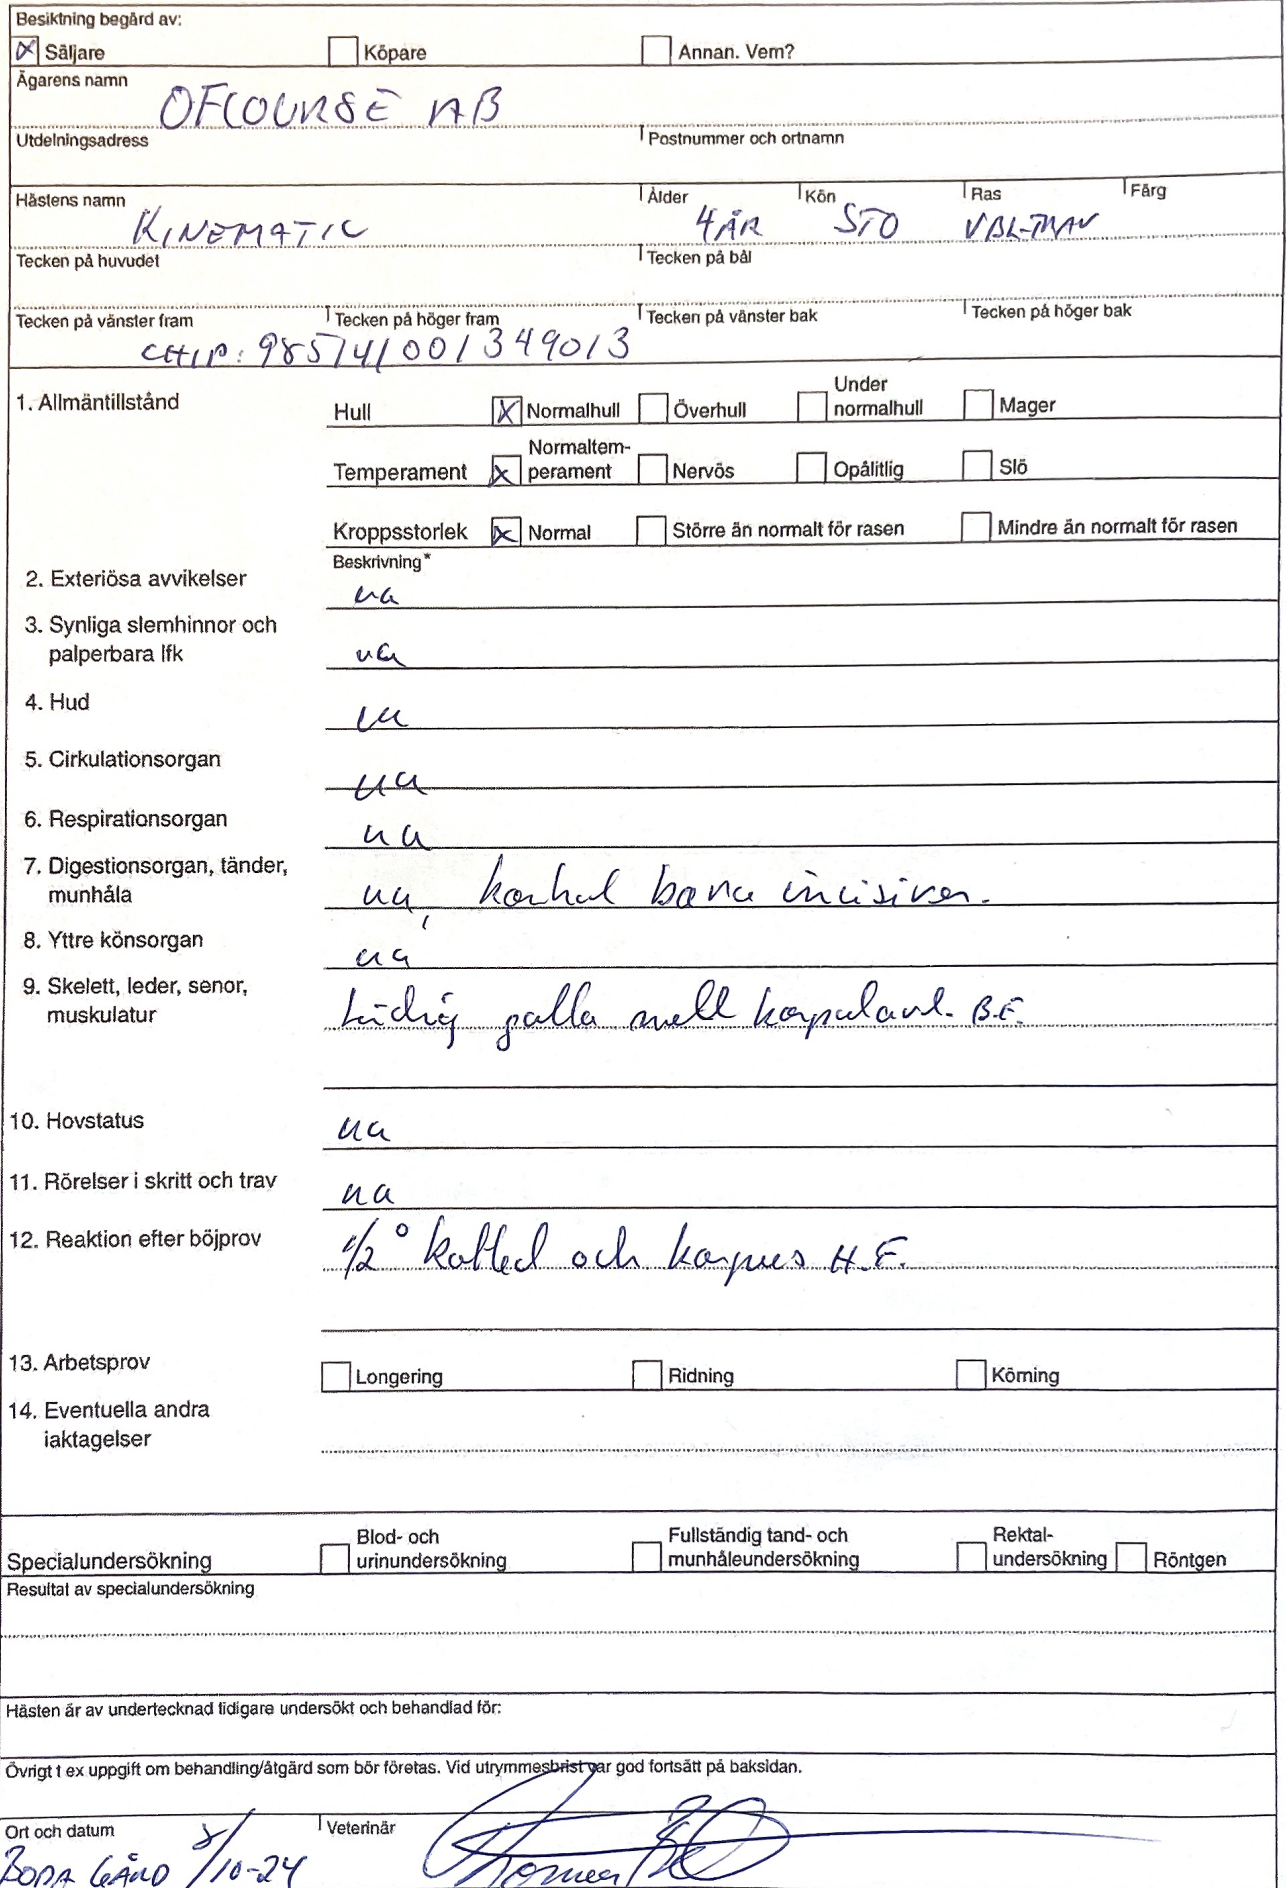 Besiktning begärd av:
X Säljare Köpare Annan. Vem?
Ägarens namn
OFCOURSE AB
Utdelningsadress Postnummer och ortnamn
Hästens namn Ålder Kön Ras Färg
KINEMATIC 4 ÅR STO VBL-TRAV
Tecken på huvudet Tecken på bål
Tecken på vänster fram Tecken på höger fram Tecken på vänster bak Tecken på höger bak
CHIP: 985141001349013
1. Allmäntillstånd Hull X Normalhull Överhull Under normalhull Mager
Temperament X Normaltem-
perament Nervös Opålitlig Slö
Kroppsstorlek X Normal Större än normalt för rasen Mindre än normalt för rasen
Beskrivning*
2. Exteriösa avvikelser ua
3. Synliga slemhinnor och
palperbara lfk ua
4. Hud ua
5. Cirkulationsorgan ua
6. Respirationsorgan ua
7. Digestionsorgan, tänder,
munhåla ua, bara incisiver.
8. Yttre könsorgan ua
9. Skelett, leder, senor,
muskulatur galla B.F.
10. Hovstatus ua
11. Rörelser i skritt och trav ua
12. Reaktion efter böjprov 1/2° kotled och karpus H.F.
13. Arbetsprov Longering Ridning Körning
14. Eventuella andra
iaktagelser
Specialundersökning Blod- och
urinundersökning Fullständig tand- och
munhåleundersökning Rektal-
undersökning Röntgen
Resultat av specialundersökning
Hästen är av undertecknad tidigare undersökt och behandlad för:
Övrigt t ex uppgift om behandling/åtgärd som bör företas. Vid utrymmesbrist var god fortsätt på baksidan.
Ort och datum Veterinär
BODA GÅRD /10-24